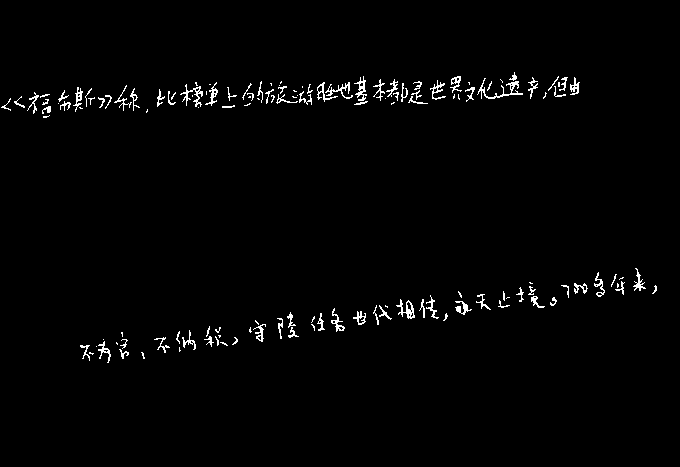 《福布斯》称,此榜单上的旅游胜地基本都是世界文化遗产,但由
不为官、不纳税,守陵任务世代相传,永无止境。700多年来,